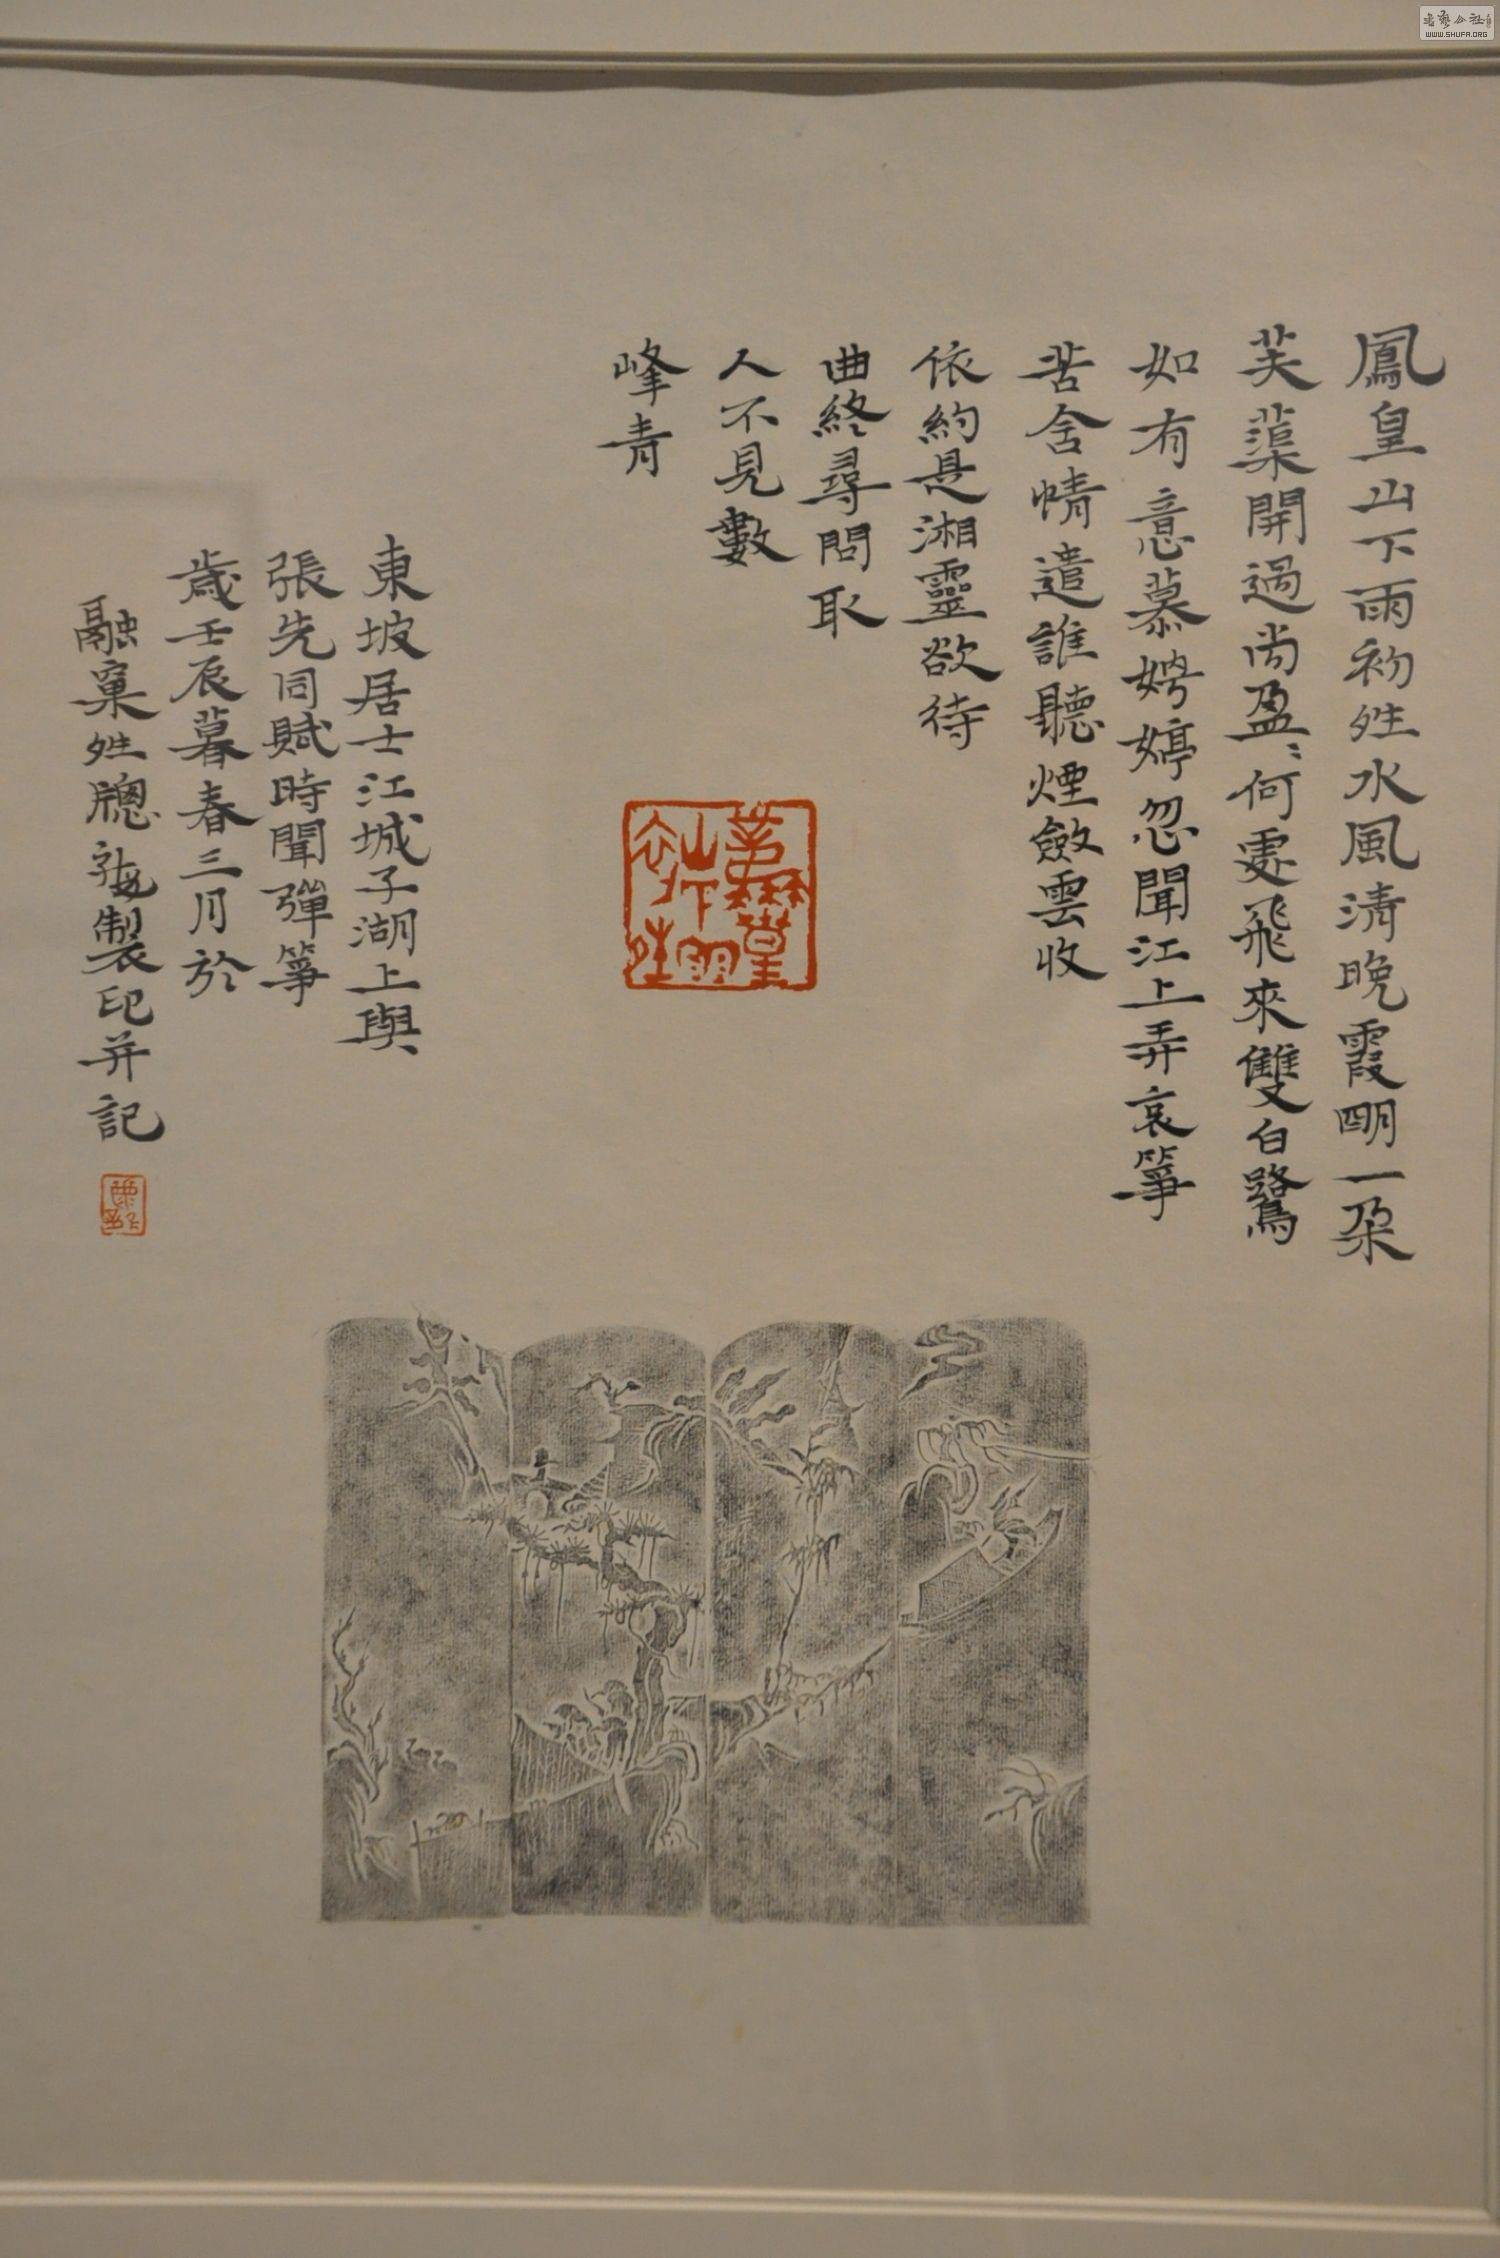 鳳皇山下雨初姓水風清晚霞明一朶
芙蕖開過尚盈〻何處飛來雙白鷺
如有意慕娉婷忽聞江上弄哀箏
苦含情遣誰聽煙斂雲收
依約是湘靈欲待
曲終尋問取
人不見數
峰青
東坡居士江城子湖上與
張先同賦時聞彈箏
歲壬辰暮春三月於
融窠姓牕 製印并記
WWW.SHUFA.ORG